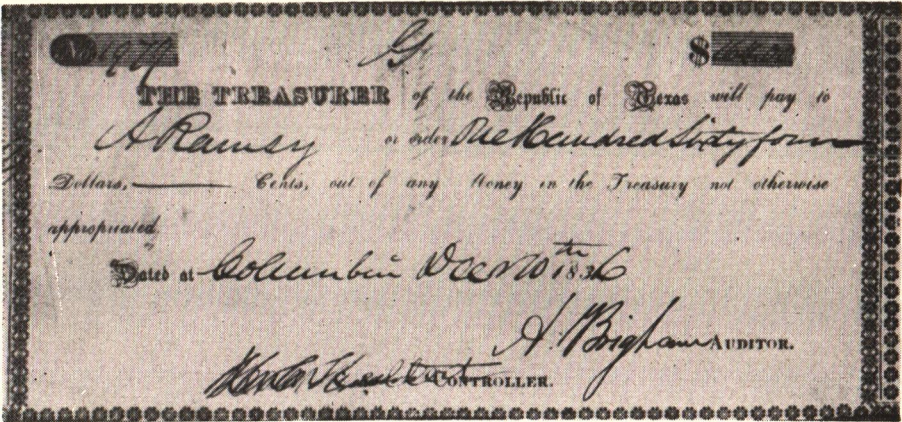 $
THE TREASURER of the Republic of Texas will pay to
A Ramsy or order One Hundred Sixty four
Dollars, —— Cents, out of any Money in the Treasury not otherwise
appropriated.
Dated at Columbia Decr 10th 1836
A. Brigham AUDITOR.
CONTROLLER.